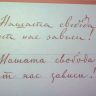 Нашата свобода
от нас зависи!
Нашата свобода
от нас зависи!